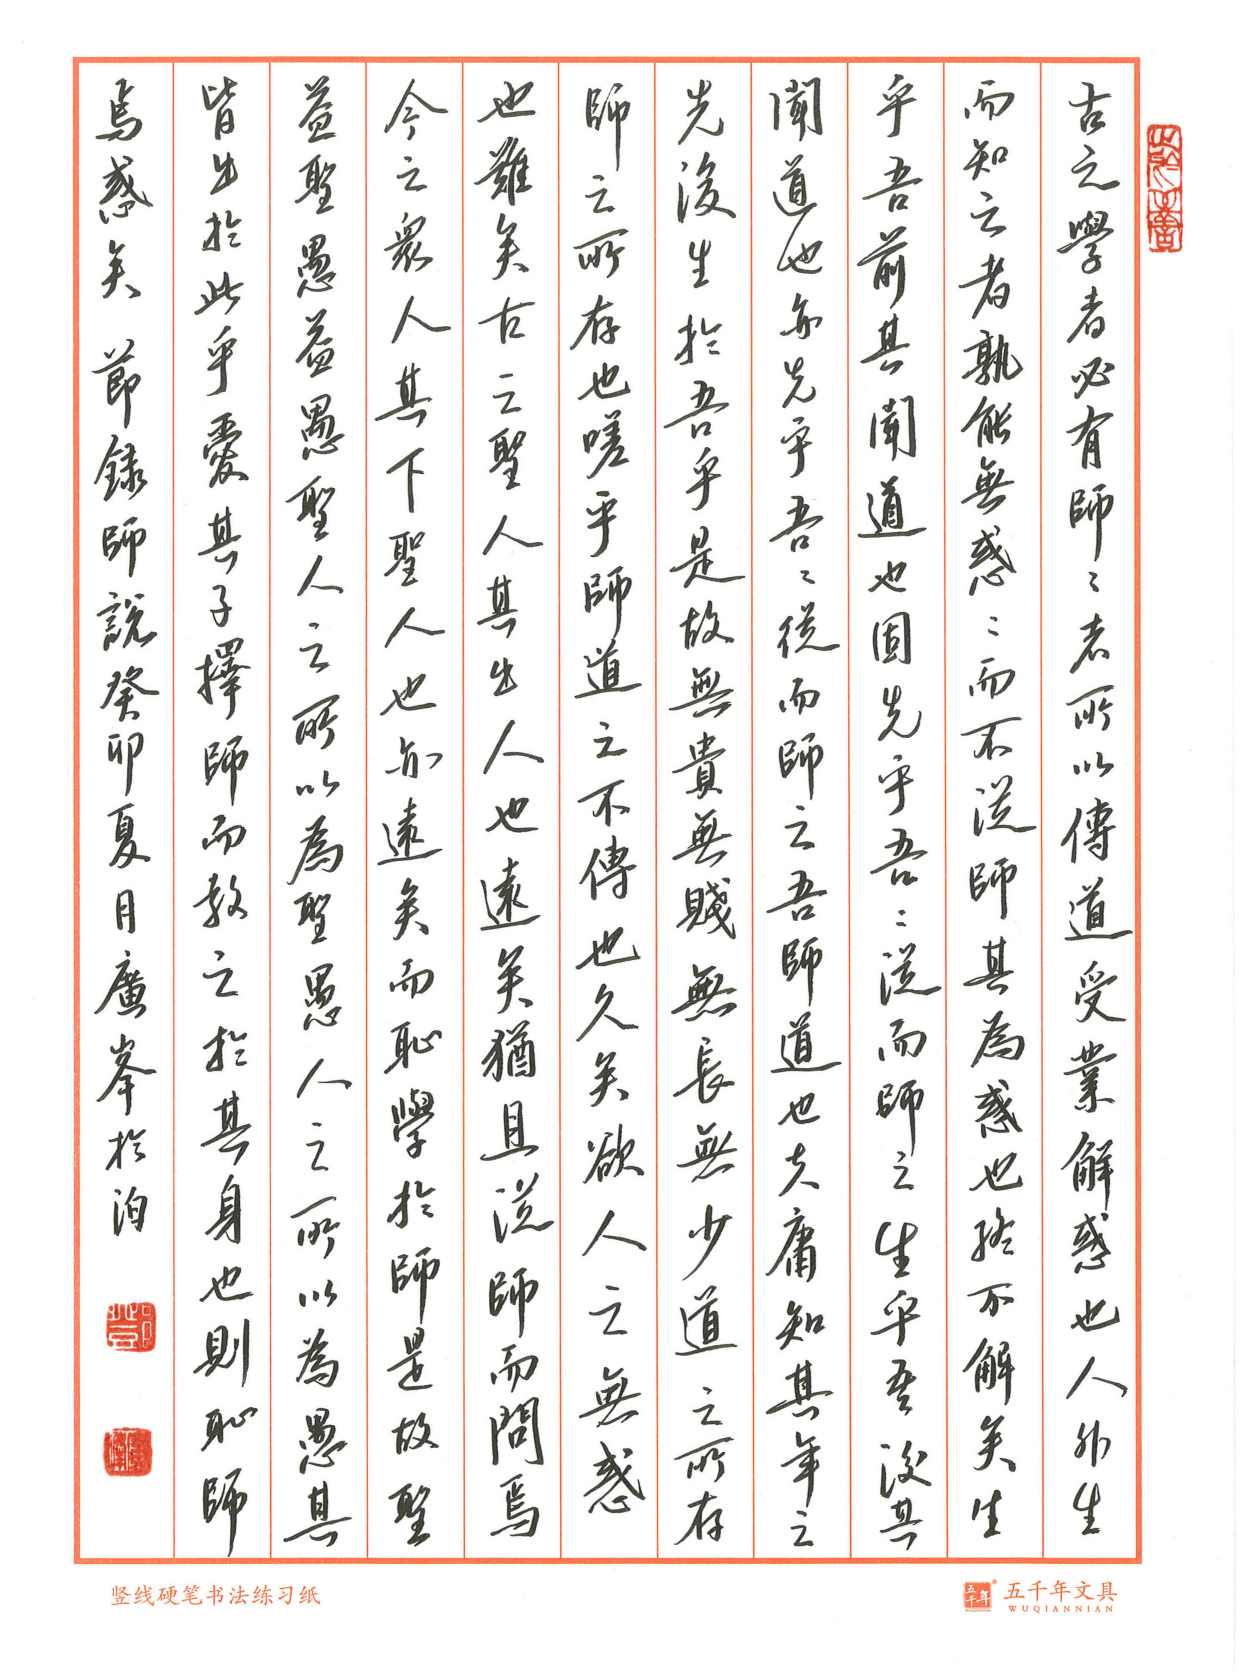 古之學者必有師〻者所以傳道受業解惑也人非生
而知之者孰能無惑〻而不從師其為惑也終不解矣生
乎吾前其聞道也固先乎吾〻從而師之生乎吾後其
聞道也亦先乎吾〻從而師之吾師道也夫庸知其年之
先後生於吾乎是故無貴無賤無長無少道之所存
師之所存也嗟乎師道之不傳也久矣欲人之無惑
也難矣古之聖人其出人也遠矣猶且從師而問焉
今之衆人其下聖人也亦遠矣而恥學於師是故聖
益聖愚益愚聖人之所以為聖愚人之所以為愚其
皆出於此乎愛其子擇師而教之於其身也則恥師
焉惑矣 節錄師說癸卯夏月廣峯於泊
竖线硬笔书法练习纸
五千年 五千年文具
WUQIANNIAN